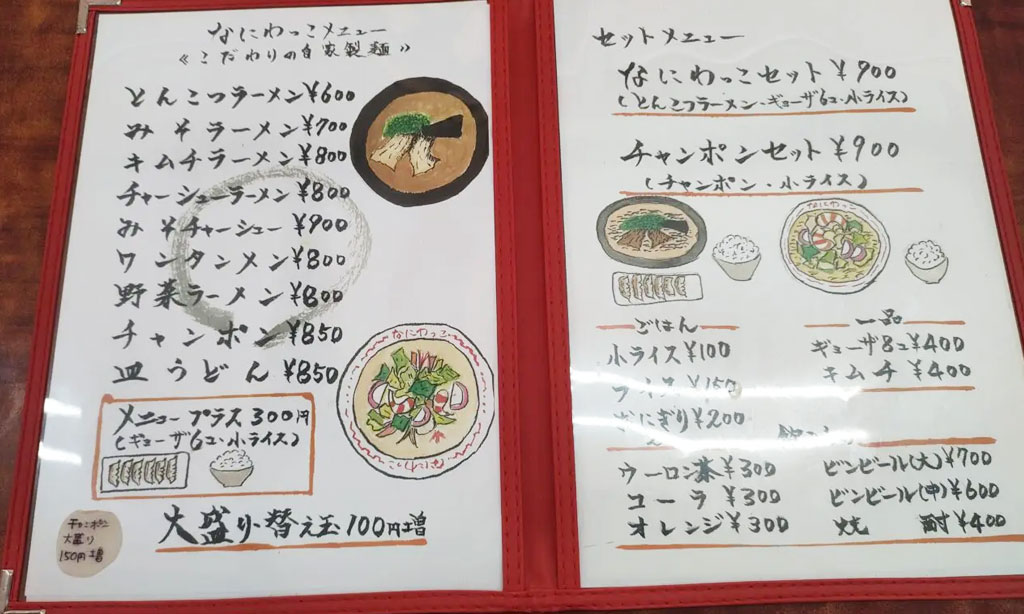 なにわっこメニュー
《こだわりの自家製麺》
とんこつラーメン¥600
みそラーメン¥700
キムチラーメン¥800
チャーシューラーメン¥800
みそチャーシュー¥900
ワンタンメン¥800
野菜ラーメン¥800
チャンポン¥850
皿うどん¥850
なにわっこ
メニュープラス300円
(ギョーザ6コ・小ライス)
大盛り・替え玉100円増
チャンポン
大盛り
150円増
セットメニュー
なにわっこセット¥900
(とんこつラーメン・ギョーザ6コ・小ライス)
チャンポンセット¥900
(チャンポン・小ライス)
なにわっこ
ごはん
小ライス¥100
ライス¥150
おにぎり¥200
一品
ギョーザ8コ¥400
キムチ¥400
ウーロン茶¥300
コーラ¥300
オレンジ¥300
ビンビール(大)¥700
ビンビール(中)¥600
焼酎¥400